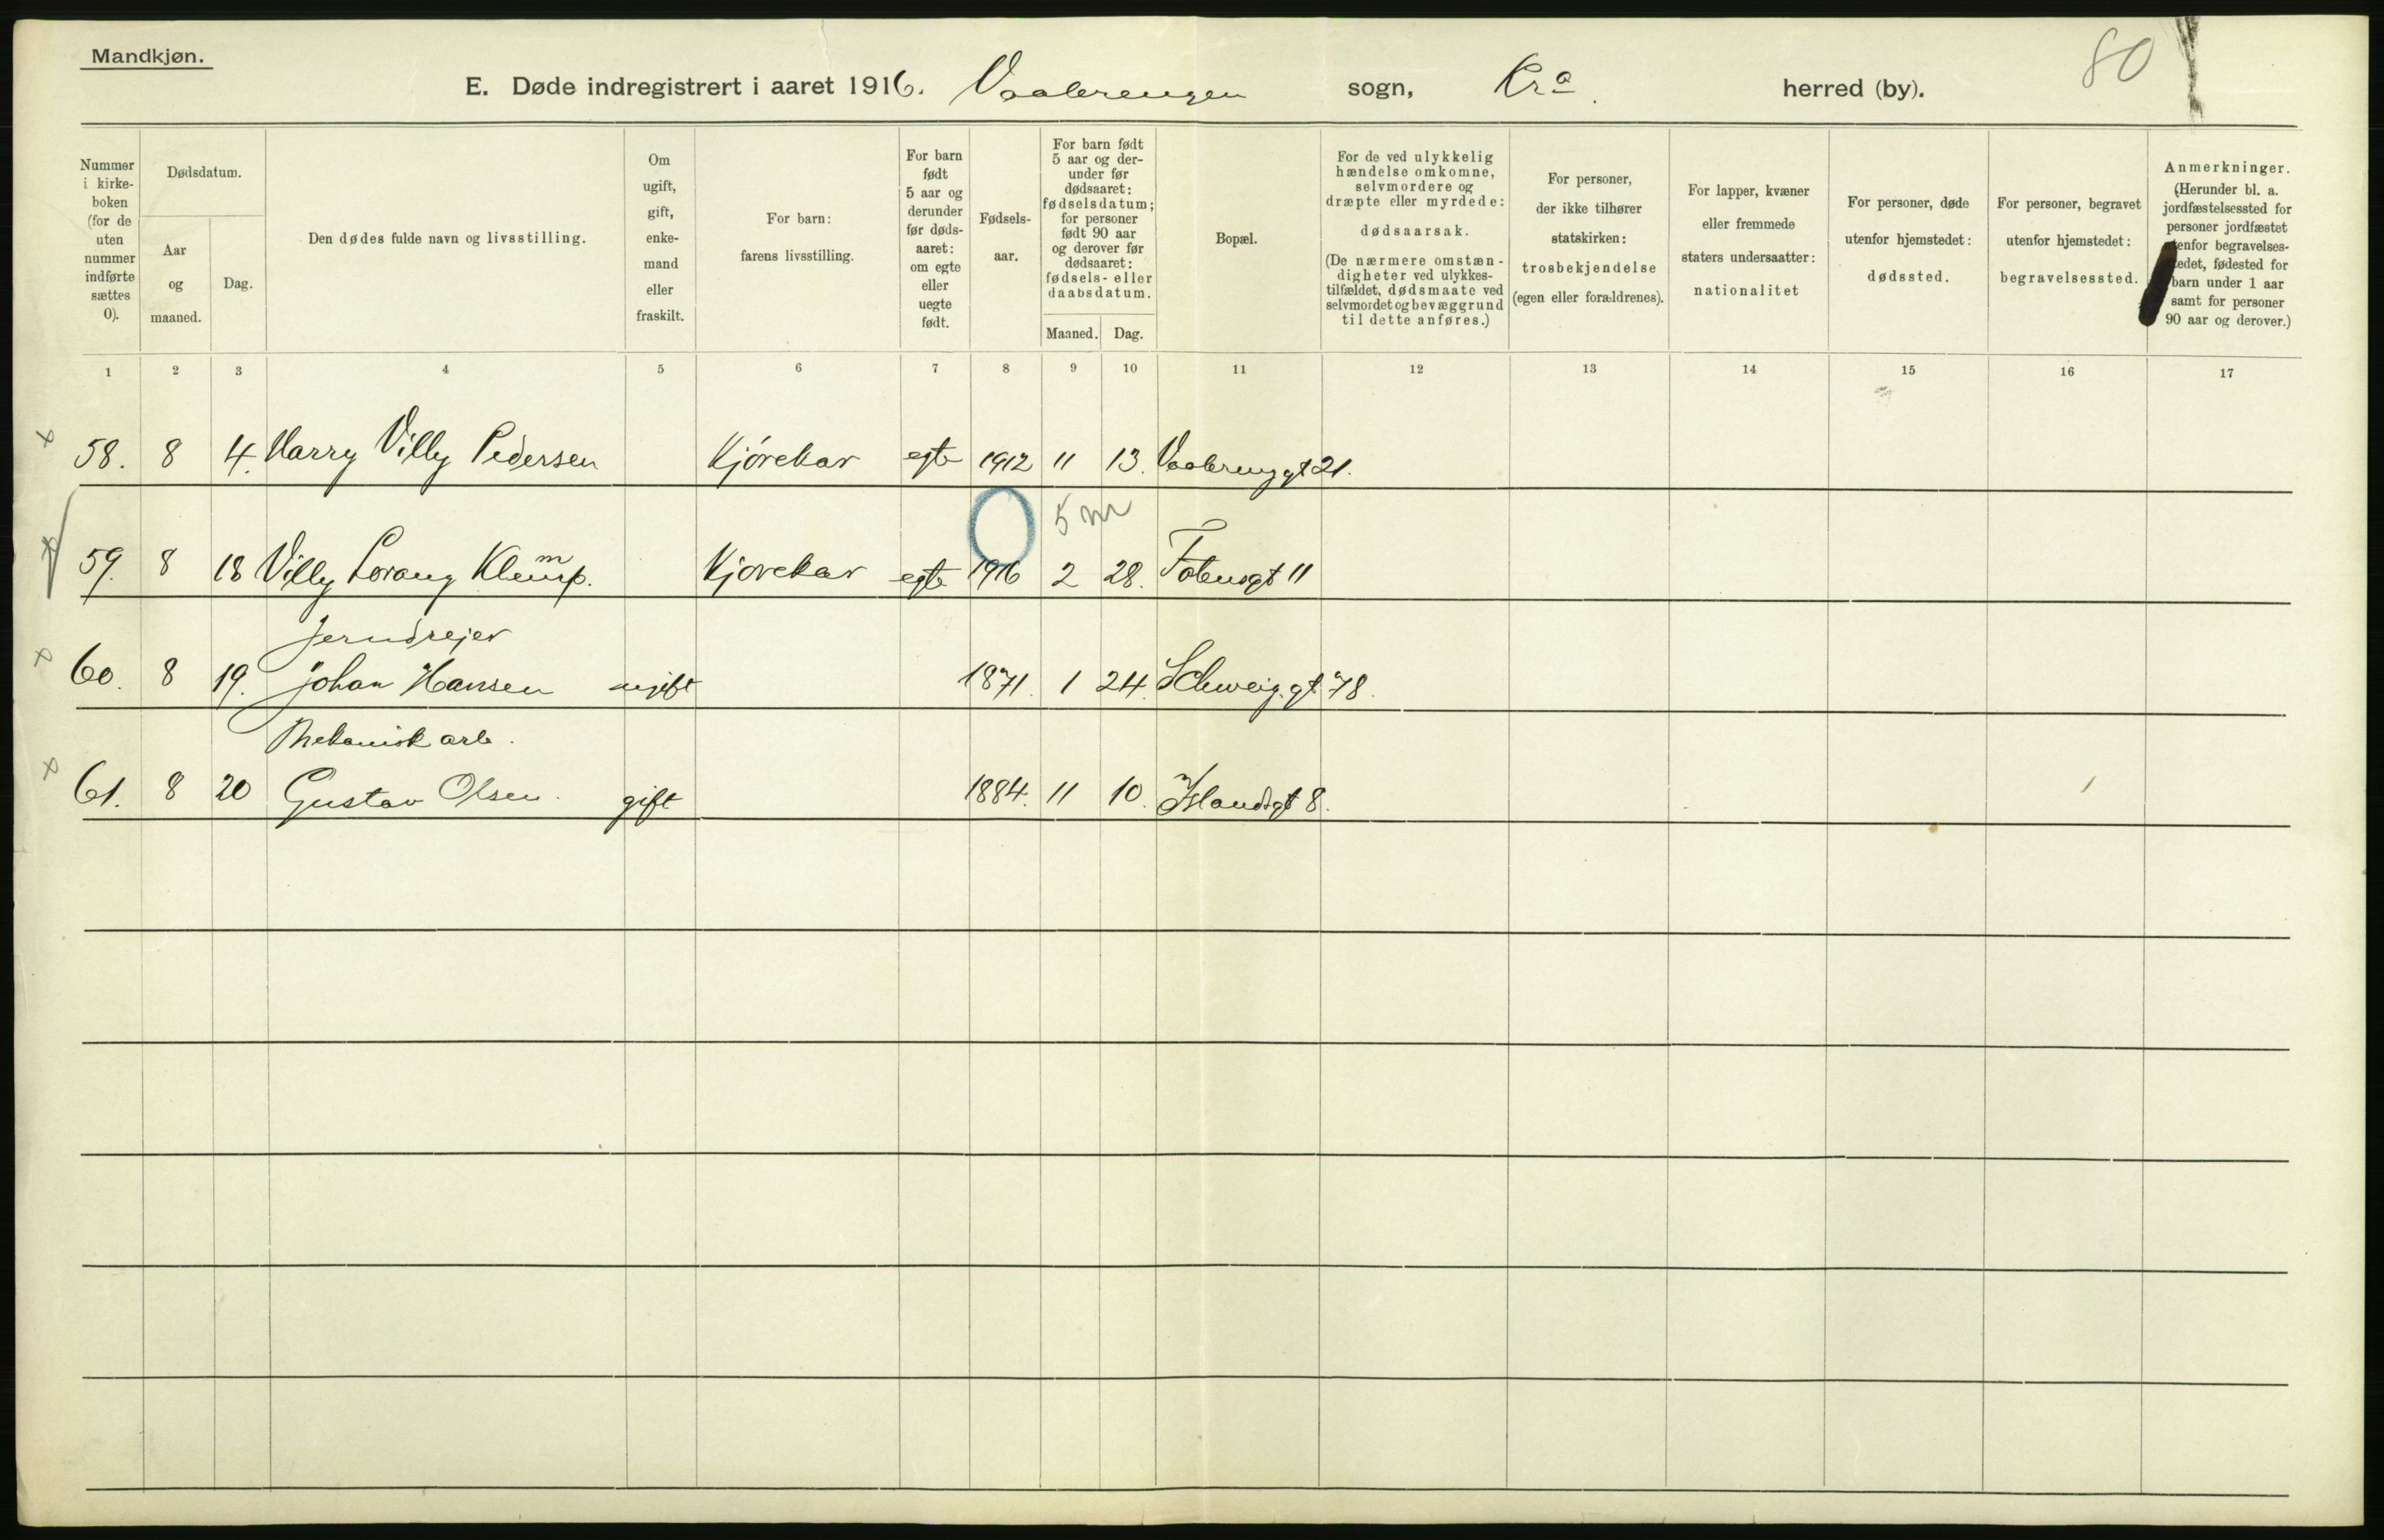 Mandkjøn.
80
E. Døde indregistrert i aaret 1916. Vaalerengen sogn, Kra. herred (by).
Nummer i kirke- boken (for de uten nummer indførte sættes 0).
Dødsdatum.
Aar og maaned.
Dag.
Den dødes fulde navn og livsstilling.
Om ugift, gift, enke- mand eller fraskilt.
For barn: farens livsstilling.
For barn født 5 aar og derunder før døds- aaret: om egte eller uegte født.
Fødsels- aar.
For barn født 5 aar og der- under før dødsaaret: fødselsdatum; for personer født 90 aar og derover før dødsaaret: fødsels- eller daabsdatum.
Maaned.
Dag.
Bopæl.
For de ved ulykkelig hændelse omkomne, selvmordere og dræpte eller myrdede: dødsaarsak. (De nærmere omstæn- digheter ved ulykkes- tilfældet, dødsmaate ved selvmordet og bevæggrund til dette anføres.)
For personer, der ikke tilhører statskirken: trosbekjendelse (egen eller forældrenes).
For lapper, kvæner eller fremmede staters undersaatter: nationalitet
For personer, døde utenfor hjemstedet: dødssted.
For personer, begravet utenfor hjemstedet: begravelsessted.
Anmerkninger. (Herunder bl. a. jordfæstelsessted for personer jordfæstet utenfor begravelses- stedet, fødested for barn under 1 aar samt for personer 90 aar og derover.)
1 2 3 4 5 6 7 8 9 10 11 12 13 14 15 16 17
58. 8 4. Harry Villy Pedersen Kjørekar egte 1912 11 13. Vaalerenggt 21.
5 m
59. 8 18 Villy Lorang Klemp. Kjørekar egte 1916 2 28. Totensgt 11
Jerndrejer
60. 8 19. Johan Hansen ugift 1871. 1 24. Schweig.gt. 78.
Mekanisk arb.
61. 8 20 Gustav Olsen. gift 1884. 11 10. Islandsgt 8.